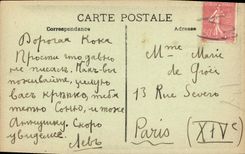 CARTE POSTALE
Correspondance
Adresse
Дорогая Кока
Прости что давно
не писалъ. Какъ вы
поживаете, целую
васъ крѣпко, тебя
тетю Соню, и тоже
Аннушку. Скоро
увидемся. Левъ
Mme Marie
de Groie
13 Rue Severo
Paris (XIVe)